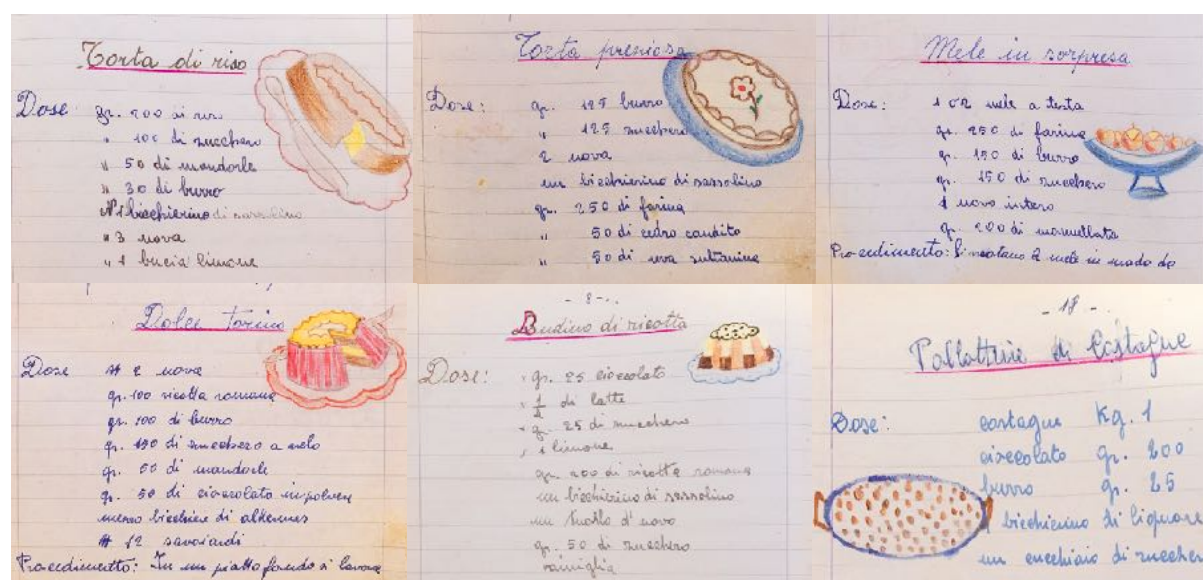 Torta di riso
Dose gr. 200 di riso
" 100 di zucchero
" 50 di mandorle
" 30 di burro
N° 1 bicchierino di sassolino
" 3 uova
" 1 bucia limone
Torta preziosa
Dose: gr. 125 burro
" 125 zucchero
2 uova
un bicchierino di sassolino
gr. 250 di farina
" 50 di cedro candito
" 50 di uva sultanina
Mele in sorpresa
Dose: 1 o 2 mele a testa
gr. 250 di farina
gr. 150 di burro
gr. 150 di zucchero
1 uovo intero
gr. 200 di marmellata
Procedimento: Si vuotano le mele in modo da
Dolce Torino
Dose N° 2 uova
gr. 100 ricotta romana
gr. 100 di burro
gr. 150 di zucchero a velo
gr. 50 di mandorle
gr. 50 di cioccolato in polvere
mezzo bicchiere di alkermes
N° 12 savoiardi
Procedimento: In un piatto fondo si lavora
- 8 -
Budino di ricotta
Dose: gr. 25 cioccolato
di latte
gr. 25 di zucchero
1 limone
gr. 200 di ricotta romana
un bicchierino di sassolino
un tuorlo d'uovo
gr. 50 di zucchero
vaniglia
- 18 -
Pallottine di Castagne
Dose: castagne Kg. 1
cioccolato gr. 200
burro gr. 25
bicchierino di liquore
un cucchiaio di zucchero